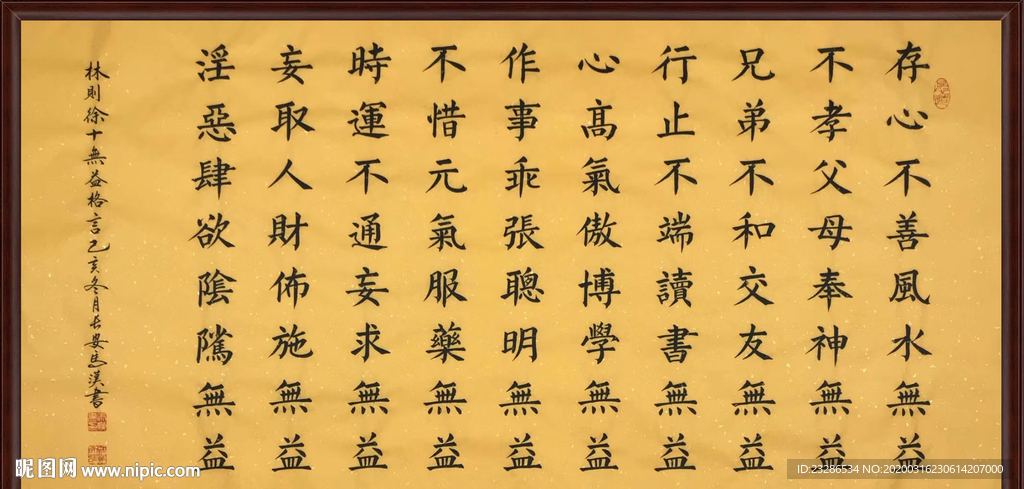 存心不善風水無益
不孝父母奉神無益
兄弟不和交友無益
行止不端讀書無益
心高氣傲博學無益
作事乖張聰明無益
不惜元氣服藥無益
時運不通妄求無益
妄取人財佈施無益
淫惡肆欲陰騭無益
林則徐十無益格言己亥冬月長安馬漢書
昵图网 www.nipic.com
ID:23286534 NO:20200316230614207000